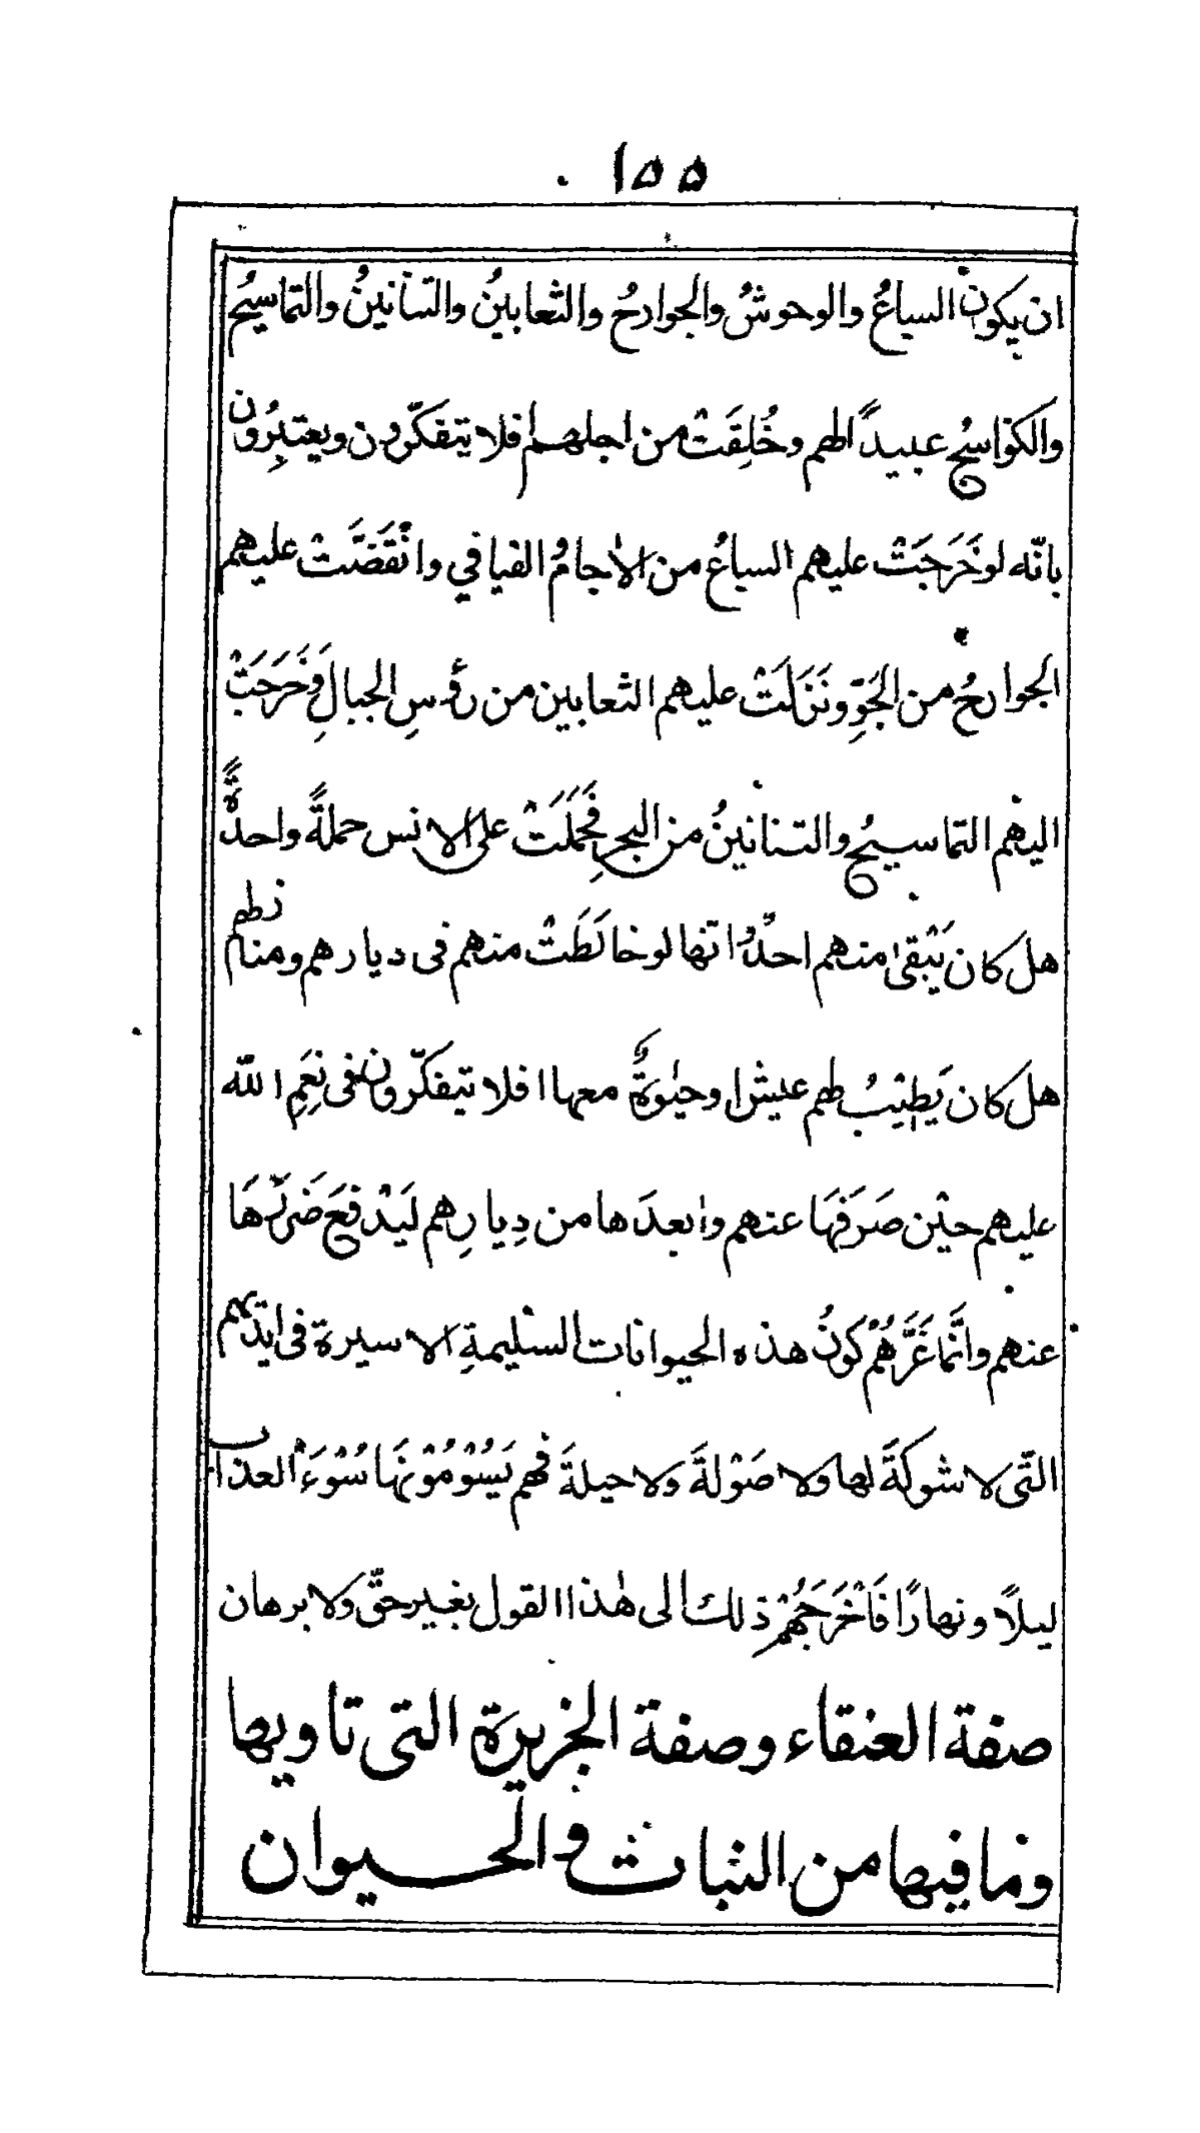 ١٥٥
ان يكون السباعُ والوحوشُ والجوارحُ والثعابينُ والتنانينُ والتماسيحُ
والكواسجُ عبيدًا لهم وخُلِقَتْ من اجلهم افلا يتفكّرون ويعتبِرُون
بانّه لو خَرَجَتْ عليهم السباعُ من الاٰجامُ الفيافي وانْقَضَّتْ عليهم
الجوارحُ من الجَوِّ ونَزَلَتْ عليهم الثعابين من رؤسِ الجبالِ وَخَرَجَتْ
اليهم التماسيحُ والتنانينُ من البحرِ فَحَمَلَتْ على الانس حملةً واحدةً
هل كان يَبْقىٰ منهم احدٌ وانها لو خالَطَتْ منهم فى ديارهم ومنازلهم
هل كان يَطِيْبُ لهم عيش او حيٰوةٌ معها افلا تتفكّرون فى نِعَمِ الله
عليهم حيْن صَرَفَهَا عنهم وابعدَها من دِيارِهم لَيَدْفعَ ضَرَرَهَا
عنهم وانَّما غَرَّهُمْ كونُ هذه الحيوانات السليمةِ الاسيرة فى ايديهم
التّى لا شوكةَ لها ولا صَوْلةَ ولا حيلةَ فهم يَسُوْمُوْنَهَا سُوْءَ العذاب
ليلاً ونهارًا فَاَخْرَجَهُمْ ذلك الى هٰذا القول بغير حقّ ولا برهان
صفة العنقاء وصفة الجزيرة التى تاويها
وما فيها من النبات والحيوان